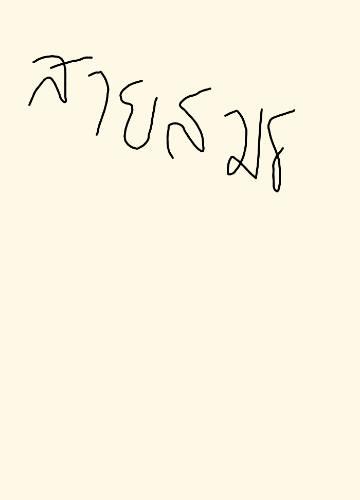 สายสมร